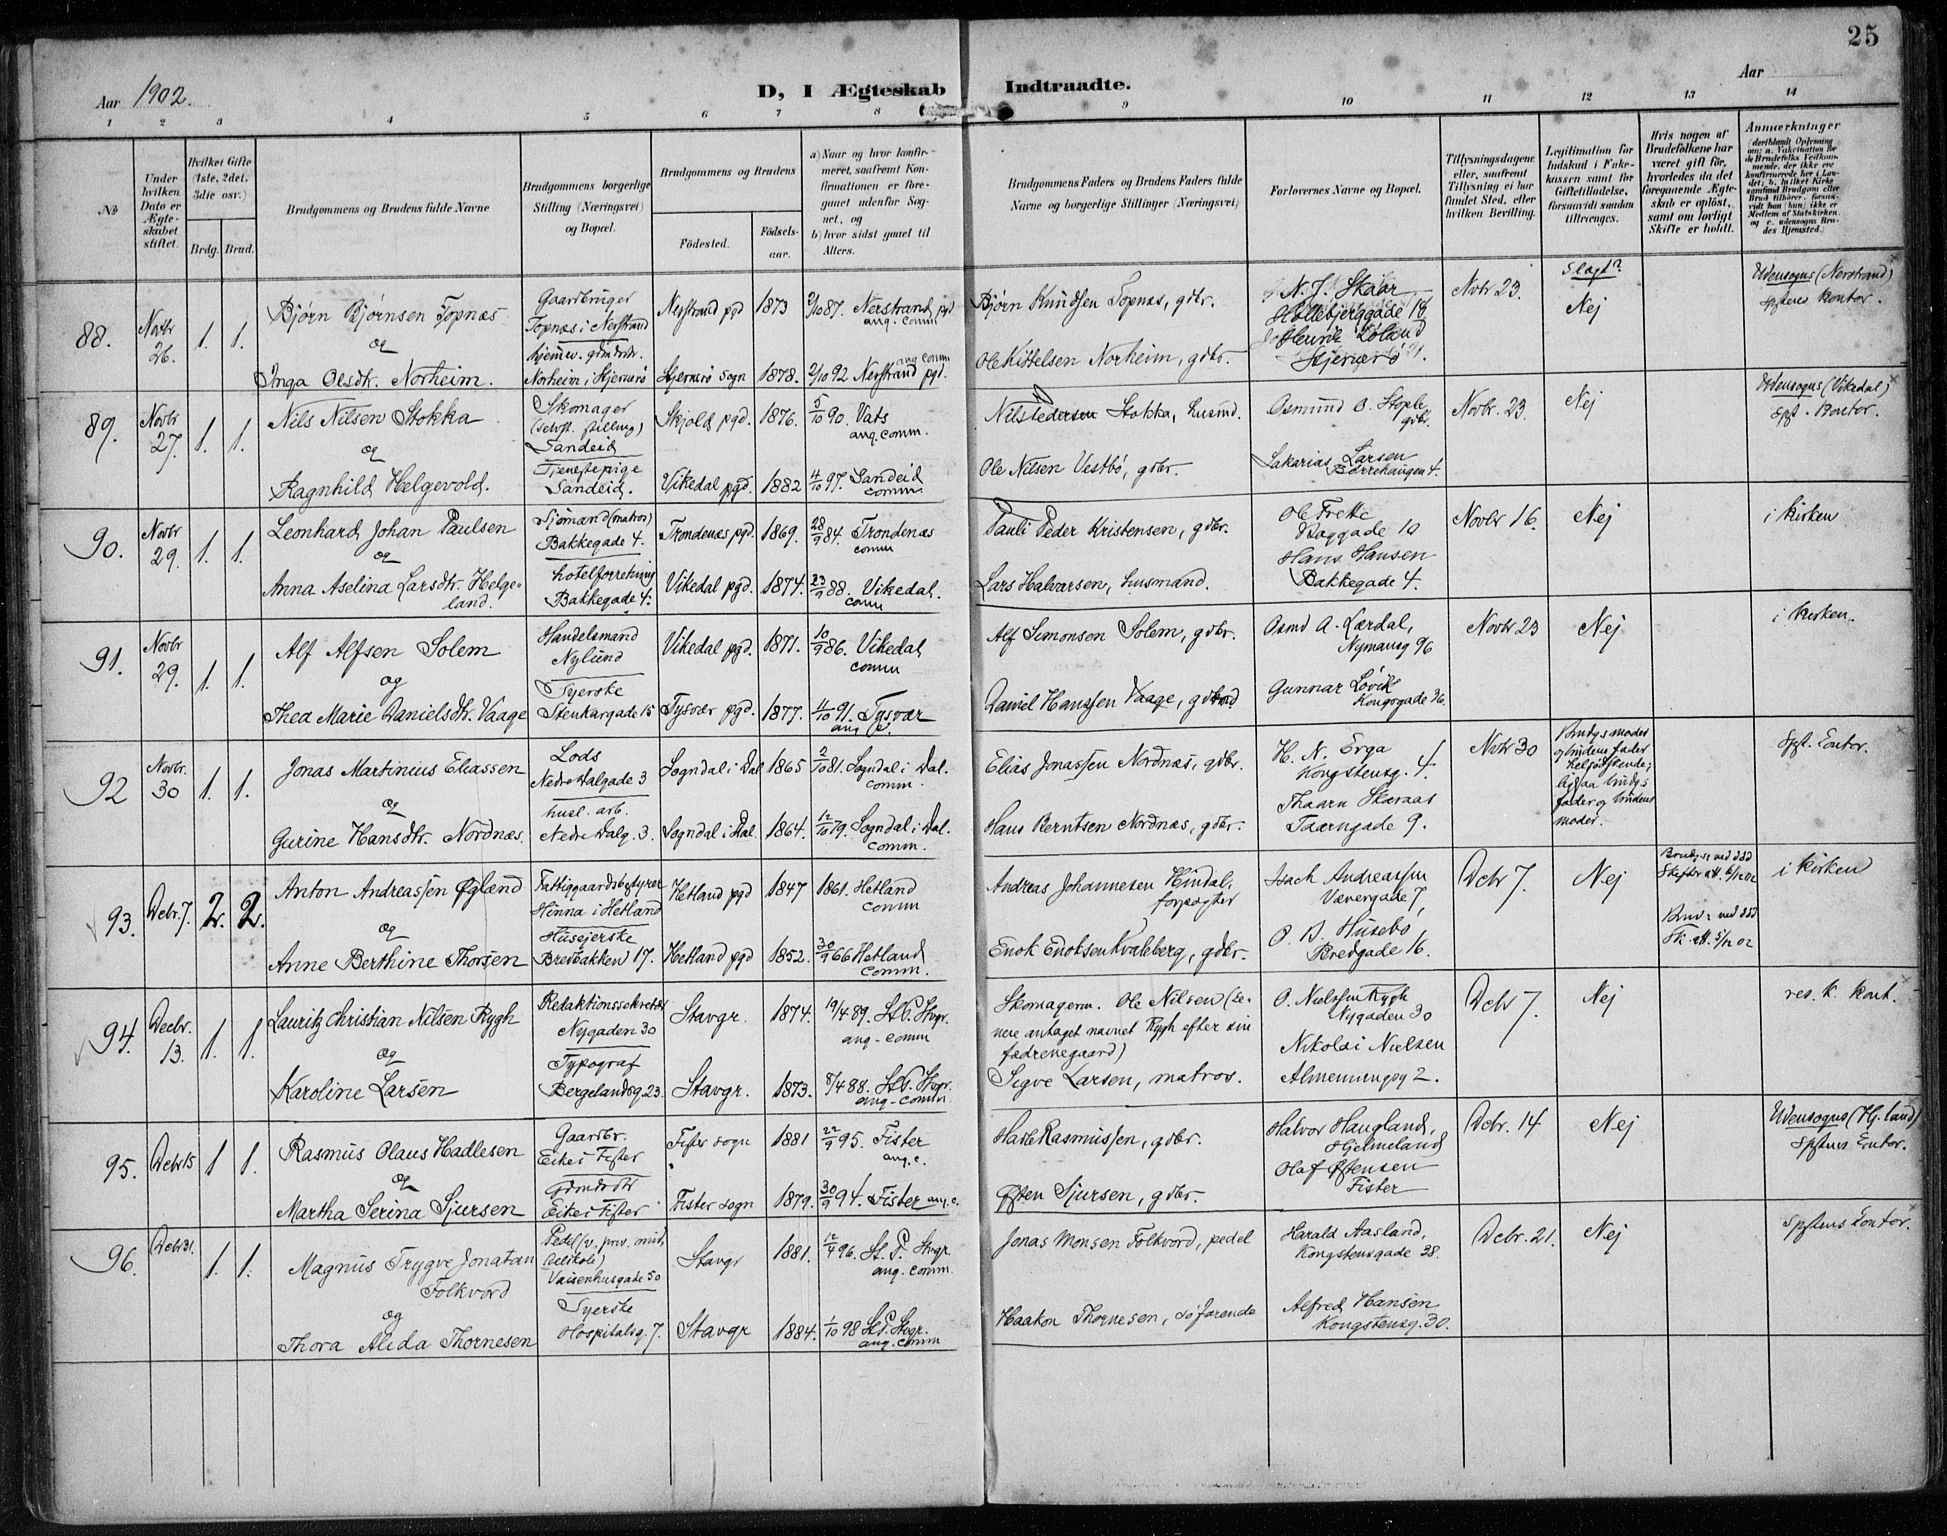 25
Aar 1902.
D, I Ægteskab Indtraadte.
Aar
1 2 3 4 5 6 7 8 9 10 11 12 13 14
№
Under hvilken Dato er Ægteskabet stiftet.
Hvilket Gifte (1ste, 2det, 3die osv.)
Brdg. Brud.
Brudgommens og Brudens fulde Navne
Brudgommens borgerlige Stilling (Næringsvei) og Bopæl.
Brudgommens og Brudens
Födested.
Födselsaar.
a) Naar og hvor konfirmeret, saafremt Konfirmationen er foregaaet udenfor Sognet, og
b) hvor sidst gaaet til Alters.
Brudgommens Faders og Brudens Faders fulde Navne og borgerlige Stillinger (Næringsvei)
Forlovernes Navne og Bopæl.
Tillysningsdagene eller, saafremt Tillysning ei har fundet Sted, efter hvilken Bevilling.
Legitimation for Indskud i Enkekassen samt for Giftetilladelse, forsaavidt saadan tiltrænges.
Hvis nogen af Brudefolkene har været gift för, hvorledes da det foregaaende Ægteskab er oplöst, samt om lovligt Skifte er holdt.
Anmærkninger
88. Novbr 26. 1. 1.
Bjørn Bjørnsen Topnæs
og
Inga Olsdtr. Norheim.
Gaardbruger
Topnæs i Nerstrand
hjemmev. gdmdrdtr.
Norheim i Hjernsrö
Nerstrand pgd 1873 2/10 87. Nerstrand pgd
ang. comm
Hjernsrö sogn 1878. 2/10 92 Nerstrand pgd.
ang comm
Bjørn Knudsen Topnæs, gdbr.
Ole Kittelsen Norheim, gdbr.
N. J. Skaar
Holebjerggade 18
Henrik Löland
Novbr 23.
Slægt?
Nej
Udensogns (Nerstrand)
Spstens kontor.
89. Novbr 27. 1. 1.
Nils Nilsen Stokka
og
Ragnhild Helgevold.
Skomager
(selvst. stilling)
Sandeid
Tjenestepige
Sandeid.
Skjold pgd. 1876. 5/10 90. Vats
ang. comm.
Vikedal pgd. 1882 4/10 97. Sandeid
comm.
Nils Pedersen Stokka, husmd.
Ole Nilsen Vestbö, gdbr.
Osmund O. Stople
gdbr.
Sakarias Larsen
Börrehaugen 4.
Novbr. 23.
Nej
Udensogns (Vikedal)
Spst. Kontor.
90. Novbr 29. 1. 1.
Leonhard Johan Paulsen
og
Anna Aselina Larsdtr. Helgeland.
Sjömand (matros)
Bakkegade 4.
hotelforretning
Bakkegade 4.
Trondenæs pgd. 1869. 28/9 84. Trondenæs
comm
Vikedal pgd. 1874. 23/9 88. Vikedal.
comm
Pauli Peder Kristensen, gdbr.
Lars Halvarsen, husmand.
Ole Frette
Baggade 10
Hans Hansen
Bakkegade 4.
Novbr 16.
Nej
i kirken
91. Novbr 29. 1. 1.
Alf Alfsen Solem
og
Thea Marie Danielsdtr. Vaage
Handelsmand
Nylund
Syerske
Stenkargade 15
Vikedal pgd. 1871. 10/9 86. Vikedal
comm
Tysvær pgd. 1877. 4/10 91. Tysvær
ang. c.
Alf Simonsen Solem, gdbr.
Daniel Hanssen Vaage,
Osmd A. Lærdal,
Nymansg 96
Gunnar Lövik
Kongsgade 36.
Novbr 23
Nej
i kirken.
92 Novbr. 30 1. 1.
Jonas Martinius Eliassen
og
Gurine Hansdtr. Nordnæs.
Lods
Nedre Dalgade 3
husl. arb.
Nedre Dalg. 3.
Sogndal i Dal. 1865 2/10 81. Sogndal i Dal.
comm.
Sogndal i Dal. 1864. 12/10 79. Sogndal i Dal.
comm.
Elias Jonassen Nordnæs, gdbr.
Hans Berntsen Nordnæs, gdbr.
H. N. Erga
Kongstensg. 4.
Thaarn Skaraas
Taarngade 9.
Novbr 30
Brudgs moder
og brudens fader
helsödskende;
ligesaa brudgs
fader og brudens
moder.
Spst. Contor.
93. Decbr. 7. 2. 2.
Anton Andreassen Øglænd
og
Anne Berthine Thorsen
Fattiggaardsbestyrer
Hinna i Hetland
Huseierske
Bredbakken 17.
Hetland pgd 1847 1861. Hetland
comm
Hetland pgd 1852. 30/9 66 Hetland
comm.
Andreas Johannesen Hindal,
forpagter
Enok Enoksen Kvaleberg, gdbr.
Isach Andreassen
Vævergade 7,
O. B. Husebö
Bredgade 16.
Decbr 7.
Nej
i kirken
94. Decbr. 13. 1. 1.
Lauritz Christian Nilsen Rygh
og
Karoline Larsen
Redaktionssekretær
Nygaden 30
Typograf
Bergelandsg. 23.
Stavgr. 1874. 19/4 89. St. P. Stvgr.
ang. comm
Stavgr. 1873. 8/4 88. St. P. Stvgr.
ang. comm.
Skomagerm. Ole Nilsen (senere antaget navnet Rygh efter sin fædrenegaard)
Sigve Larsen, matros.
O. Nielssen Rygh
Nygaden 30
Nikolai Nielsen
Almenningsg 2.
Decbr 7.
Nej
res. k. kont.
95. Decbr 15 1 1.
Rasmus Olaus Hadlesen
og
Martha Serina Sjursen
Gaardbr.
Eike i Fister
Gdmdrdtr
Eike i Fister
Fister sogn 1881 22/9 95. Fister
ang. c.
Fister sogn 1879. 30/9 94. Fister ang. c.
Hadle Rasmussen, gdbr.
Østen Sjursen, gdbr.
Halvor Haugland,
Hjelmeland
Olaf Østensen
Fister
Decbr. 14
Nej
Udensogns (Hj.land)
Spstens Contor.
96. Decbr 31. 1. 1.
Magnus Trygve Jonatan
Folkvord
og
Thora Alida Thornesen
Pedel (v. priv. mid.
Vaisenhusgade 50
Syerske
Hospitalsg. 7.
Stavgr 1881. 12/4 96. St. P. Stvgr.
ang. comm.
Stavgr 1884. 1/10 98 St. P. Stvgr.
ang. comm
Jonas Monsen Folkvord, pedel
Haakon Thornesen, söfarende
Harald Aasland,
Kongstensgade 38.
Alfred Hansen
Kongstensg. 30.
Decbr. 21.
Nej
Spstens Contor.